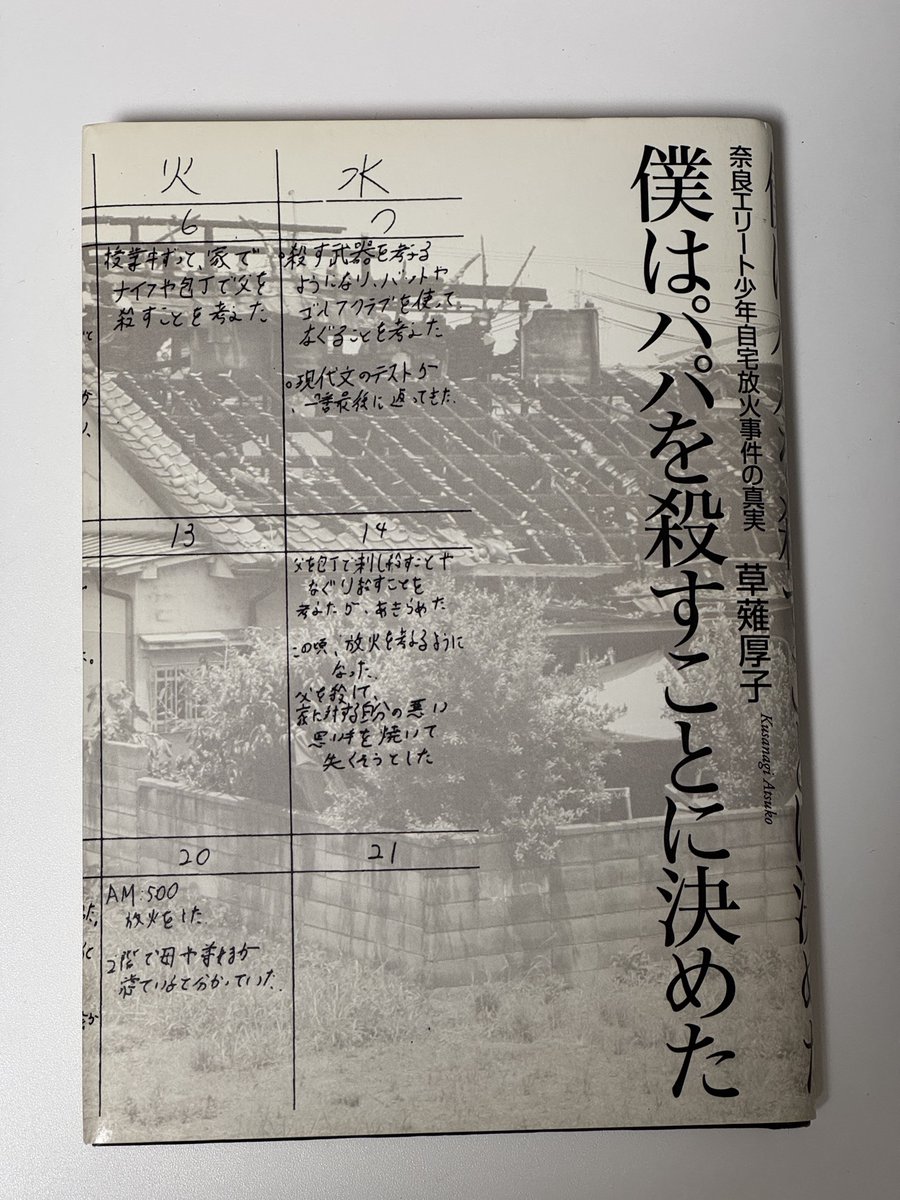 奈良エリート少年自宅放火事件の真実
僕はパパを殺すことに決めた
草薙厚子
Kusanagi Atsuko
火
水
6
7
授業中ずっと、家で
ナイフや包丁で父を
殺すことを考えた
殺す武器を考える
ようになり、バットや
ゴルフクラブを使って
なぐることを考えた
現代文のテストが
一番最後に返ってきた。
13
14
父を包丁で刺し殺すことや
なぐり殺すことを
考えたが、あきらめた
この頃、放火を考えるように
なった
父を殺して、
家に対する自分の悪い
思い出を焼いて
失くそうとした
20
21
AM:500
放火をした
2階で母や弟妹が
寝ているて分かっていた